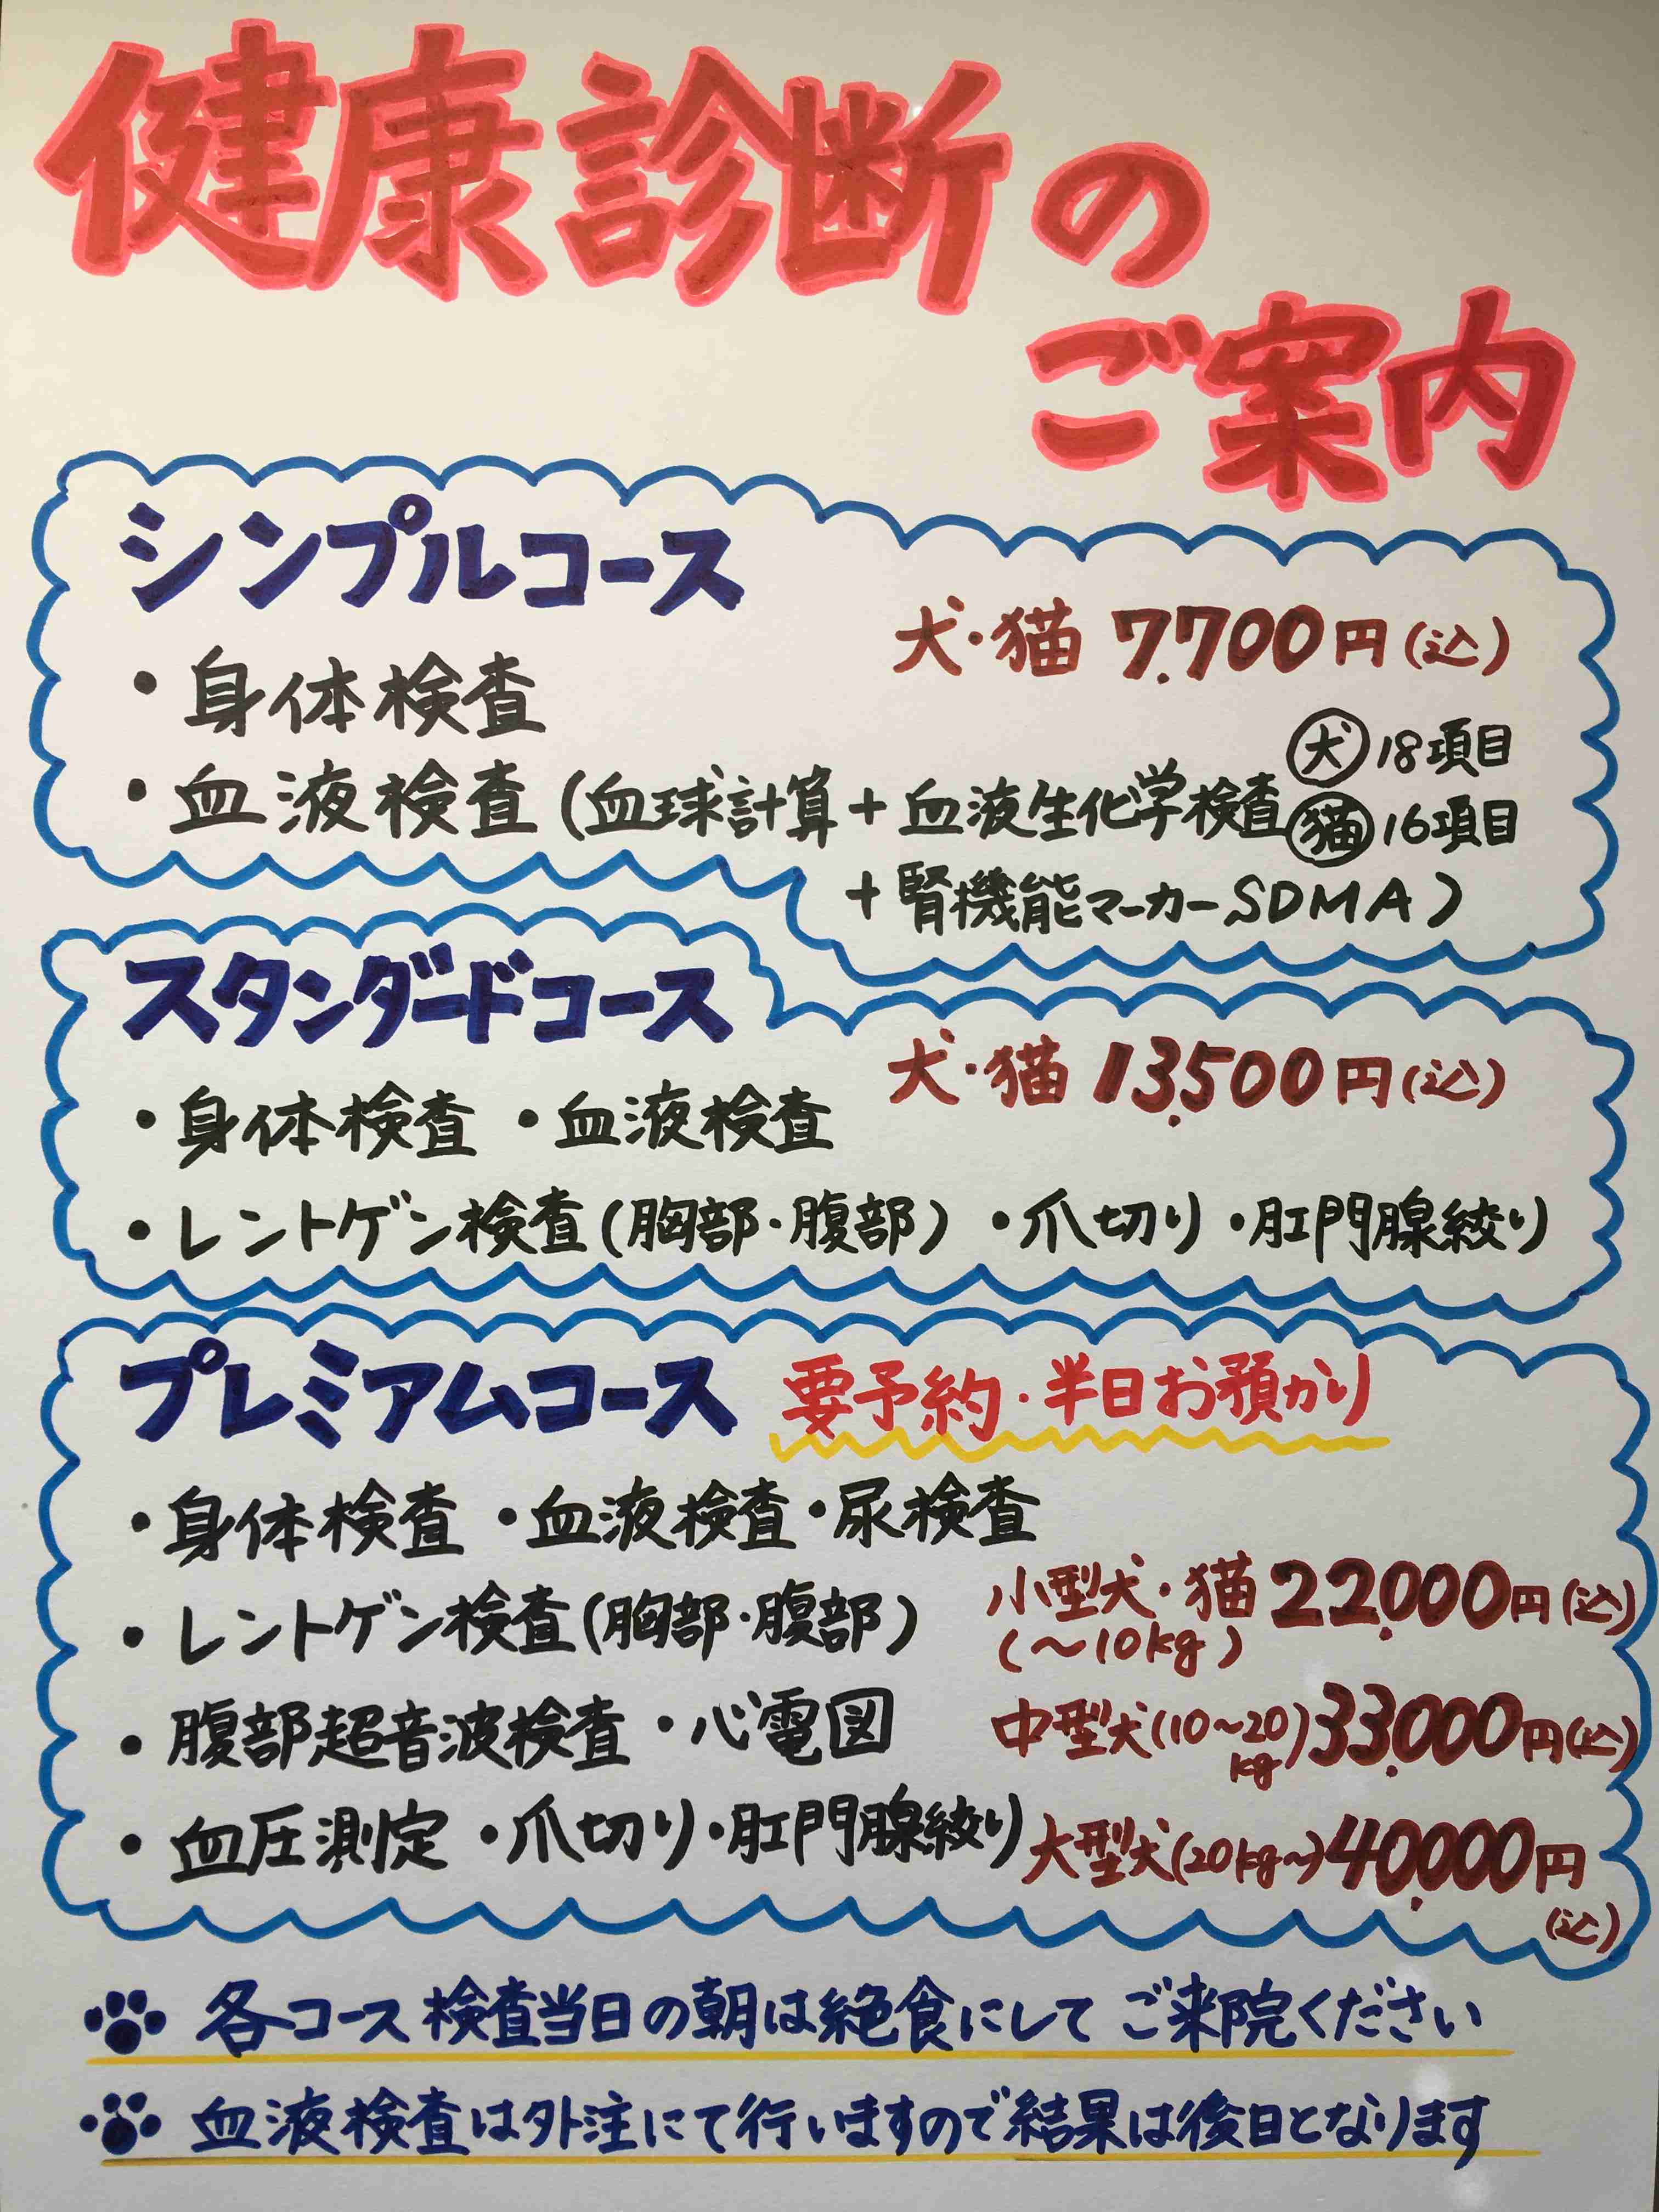 健康診断の
ご案内
シンプルコース
犬・猫 7,700円(込)
・身体検査
・血液検査(血球計算+血液生化学検査 犬 18項目
猫 16項目
+腎機能マーカーSDMA)
スタンダードコース
犬・猫 13,500円(込)
・身体検査 ・血液検査
・レントゲン検査(胸部・腹部) ・爪切り ・肛門腺絞り
プレミアムコース 要予約・半日お預かり
・身体検査 ・血液検査・尿検査
・レントゲン検査(胸部・腹部)
小型犬・猫 22,000円(込)
(〜10kg)
・腹部超音波検査 ・心電図
中型犬(10〜20kg)33,000円(込)
・血圧測定 ・爪切り・肛門腺絞り
大型犬(20kg〜)40,000円
(込)
各コース検査当日の朝は絶食にして ご来院ください
血液検査は外注にて行いますので結果は後日となります